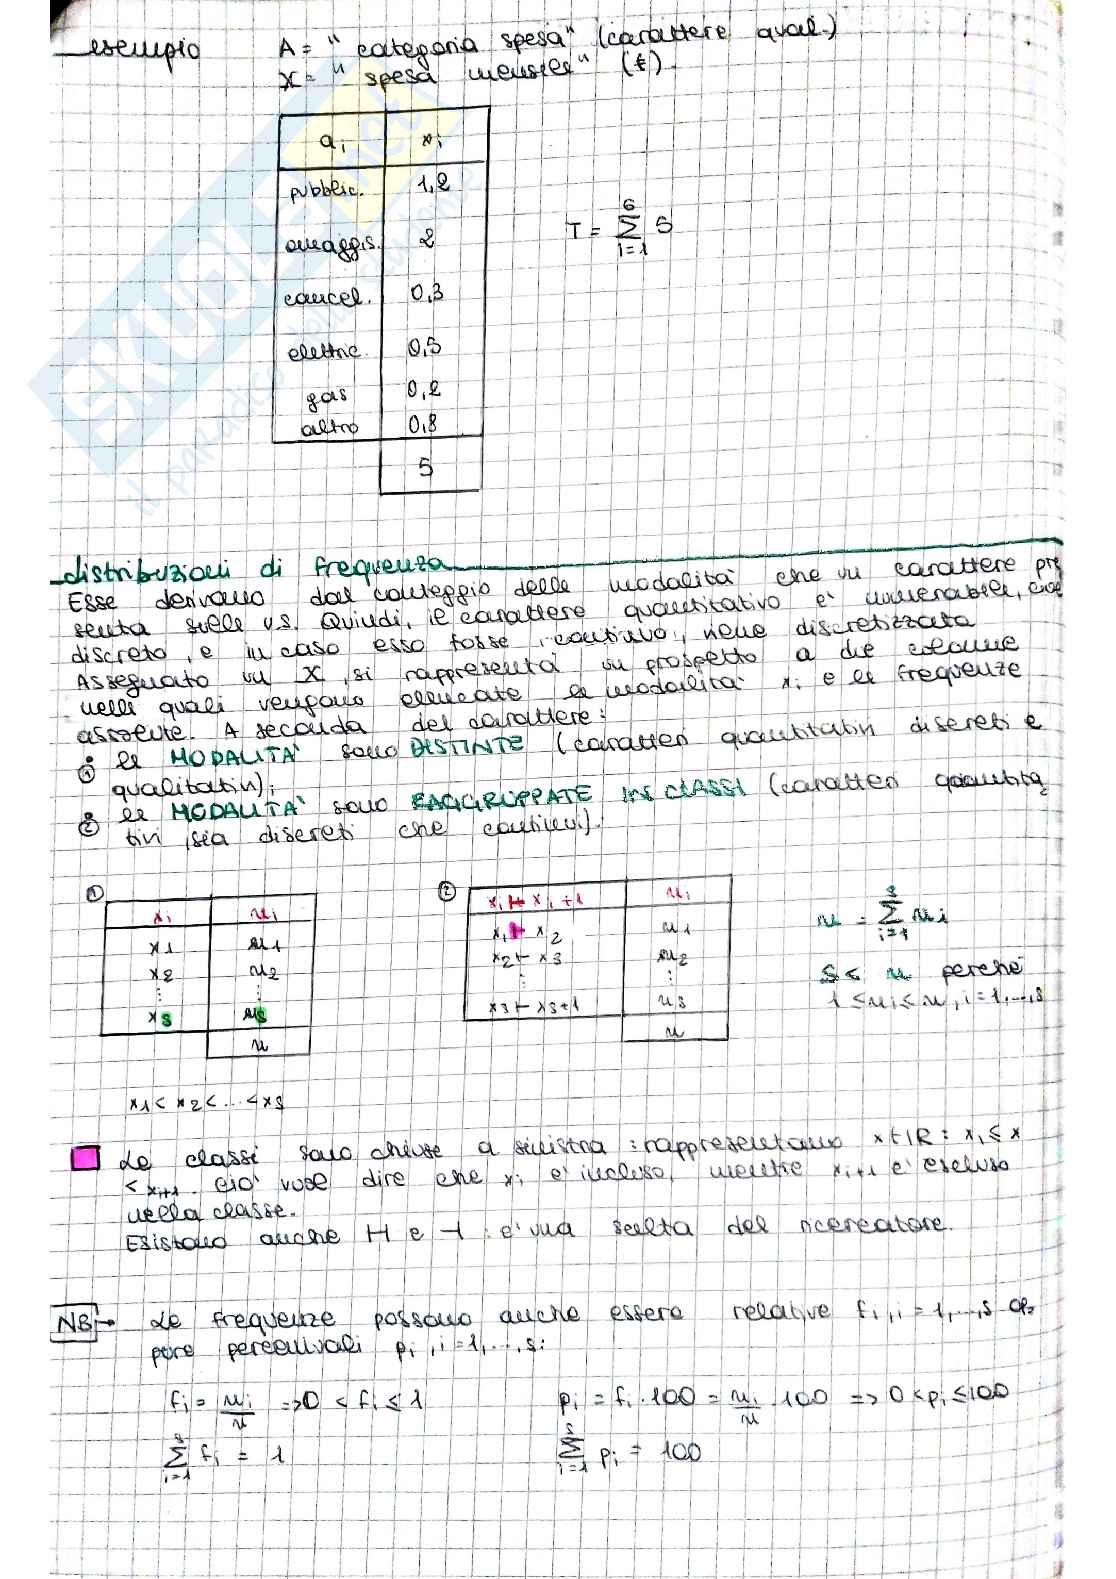 esempio A = "categoria spesa" (carattere qual.)
X = "spesa mensile" (€).
ai xi
pubblic. 1,2
omaggis. 2
cancel. 0,3
elettric. 0,5
gas 0,2
altro 0,8
5
T = 6 Σ i=1 5
distribuzioni di frequenza
Esse derivano dal conteggio delle modalità che un carattere pre
senta sulle u.s. Quindi, il carattere quantitativo è numerabile, cioè
discreto, e in caso esso fosse continuo, viene discretizzato
Assegnato un X, si rappresenta un prospetto a due colonne
nelle quali vengono elencate le modalità xi e le frequenze
assolute. A seconda del carattere:
① le MODALITÀ sono DISTINTE (caratteri quantitativi discreti e
qualitativi);
② le MODALITÀ sono RAGGRUPPATE IN CLASSI (caratteri quantita
tivi, sia discreti che continui).
①
xi ni
x1 n1
x2 n2
⋮ ⋮
xs ns
n
x1 < x2 < ... < xs
②
xi ⊢ xi+1 ni
x1 ⊢ x2 n1
x2 ⊢ x3 n2
⋮ ⋮
xs ⊢ xs+1 ns
n
n = s Σ i=1 ni
s < n perché
1 < ni ≤ n, i = 1,...,s
Le classi sono chiuse a sinistra: rappresentano x ∈ IR : xi ≤ x
< xi+1. Ciò vuol dire che xi è incluso, mentre xi+1 è escluso
nella classe.
Esistono anche H e ⊣ : è una scelta del ricercatore.
NB → Le frequenze possono anche essere relative fi, i = 1,...,s op
pure percentuali pi, i = 1,...,s:
fi = ni/n => 0 < fi ≤ 1 pi = fi · 100 = ni/n · 100 => 0 < pi ≤ 100
s Σ i=1 fi = 1 s Σ i=1 pi = 100